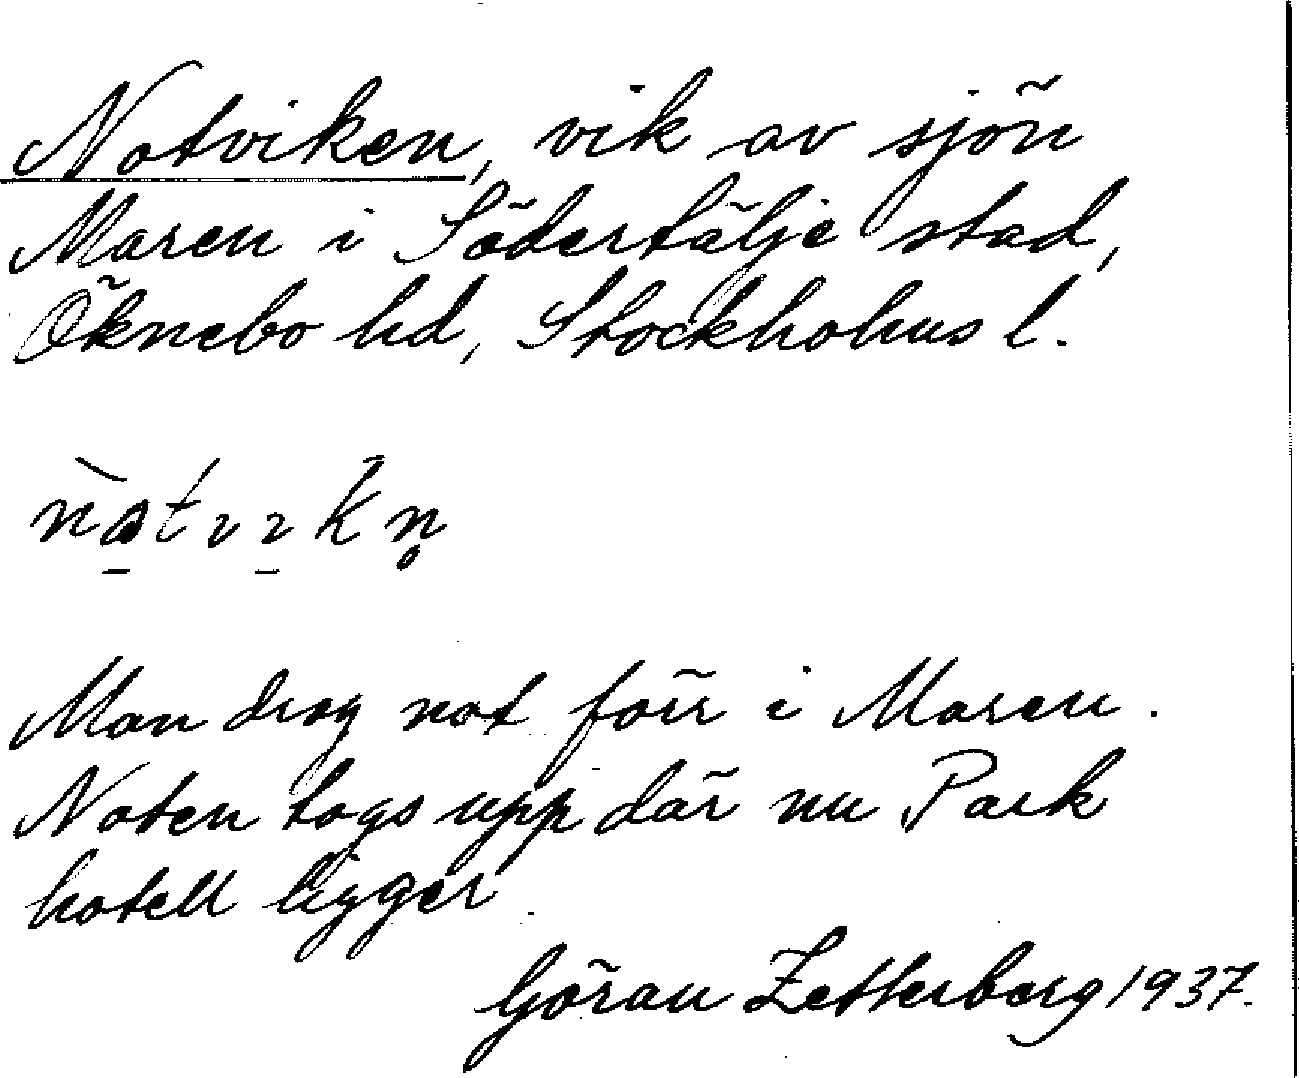 Notviken, vik av sjön
Maren i Södertälje stad,
Öknebo hd, Stockholms l.
Man drog not förr i Maren.
Noten togs upp där nu Park
hotell ligger
Göran Zetterberg 1937.